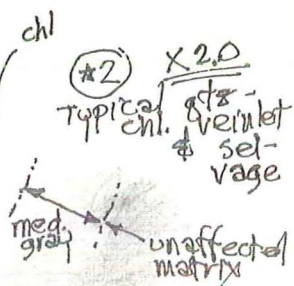 chl
*2 X 2.0
Typical qtz-
chl. veinlet
& sel-
vage
med. gray
unaffected
matrix